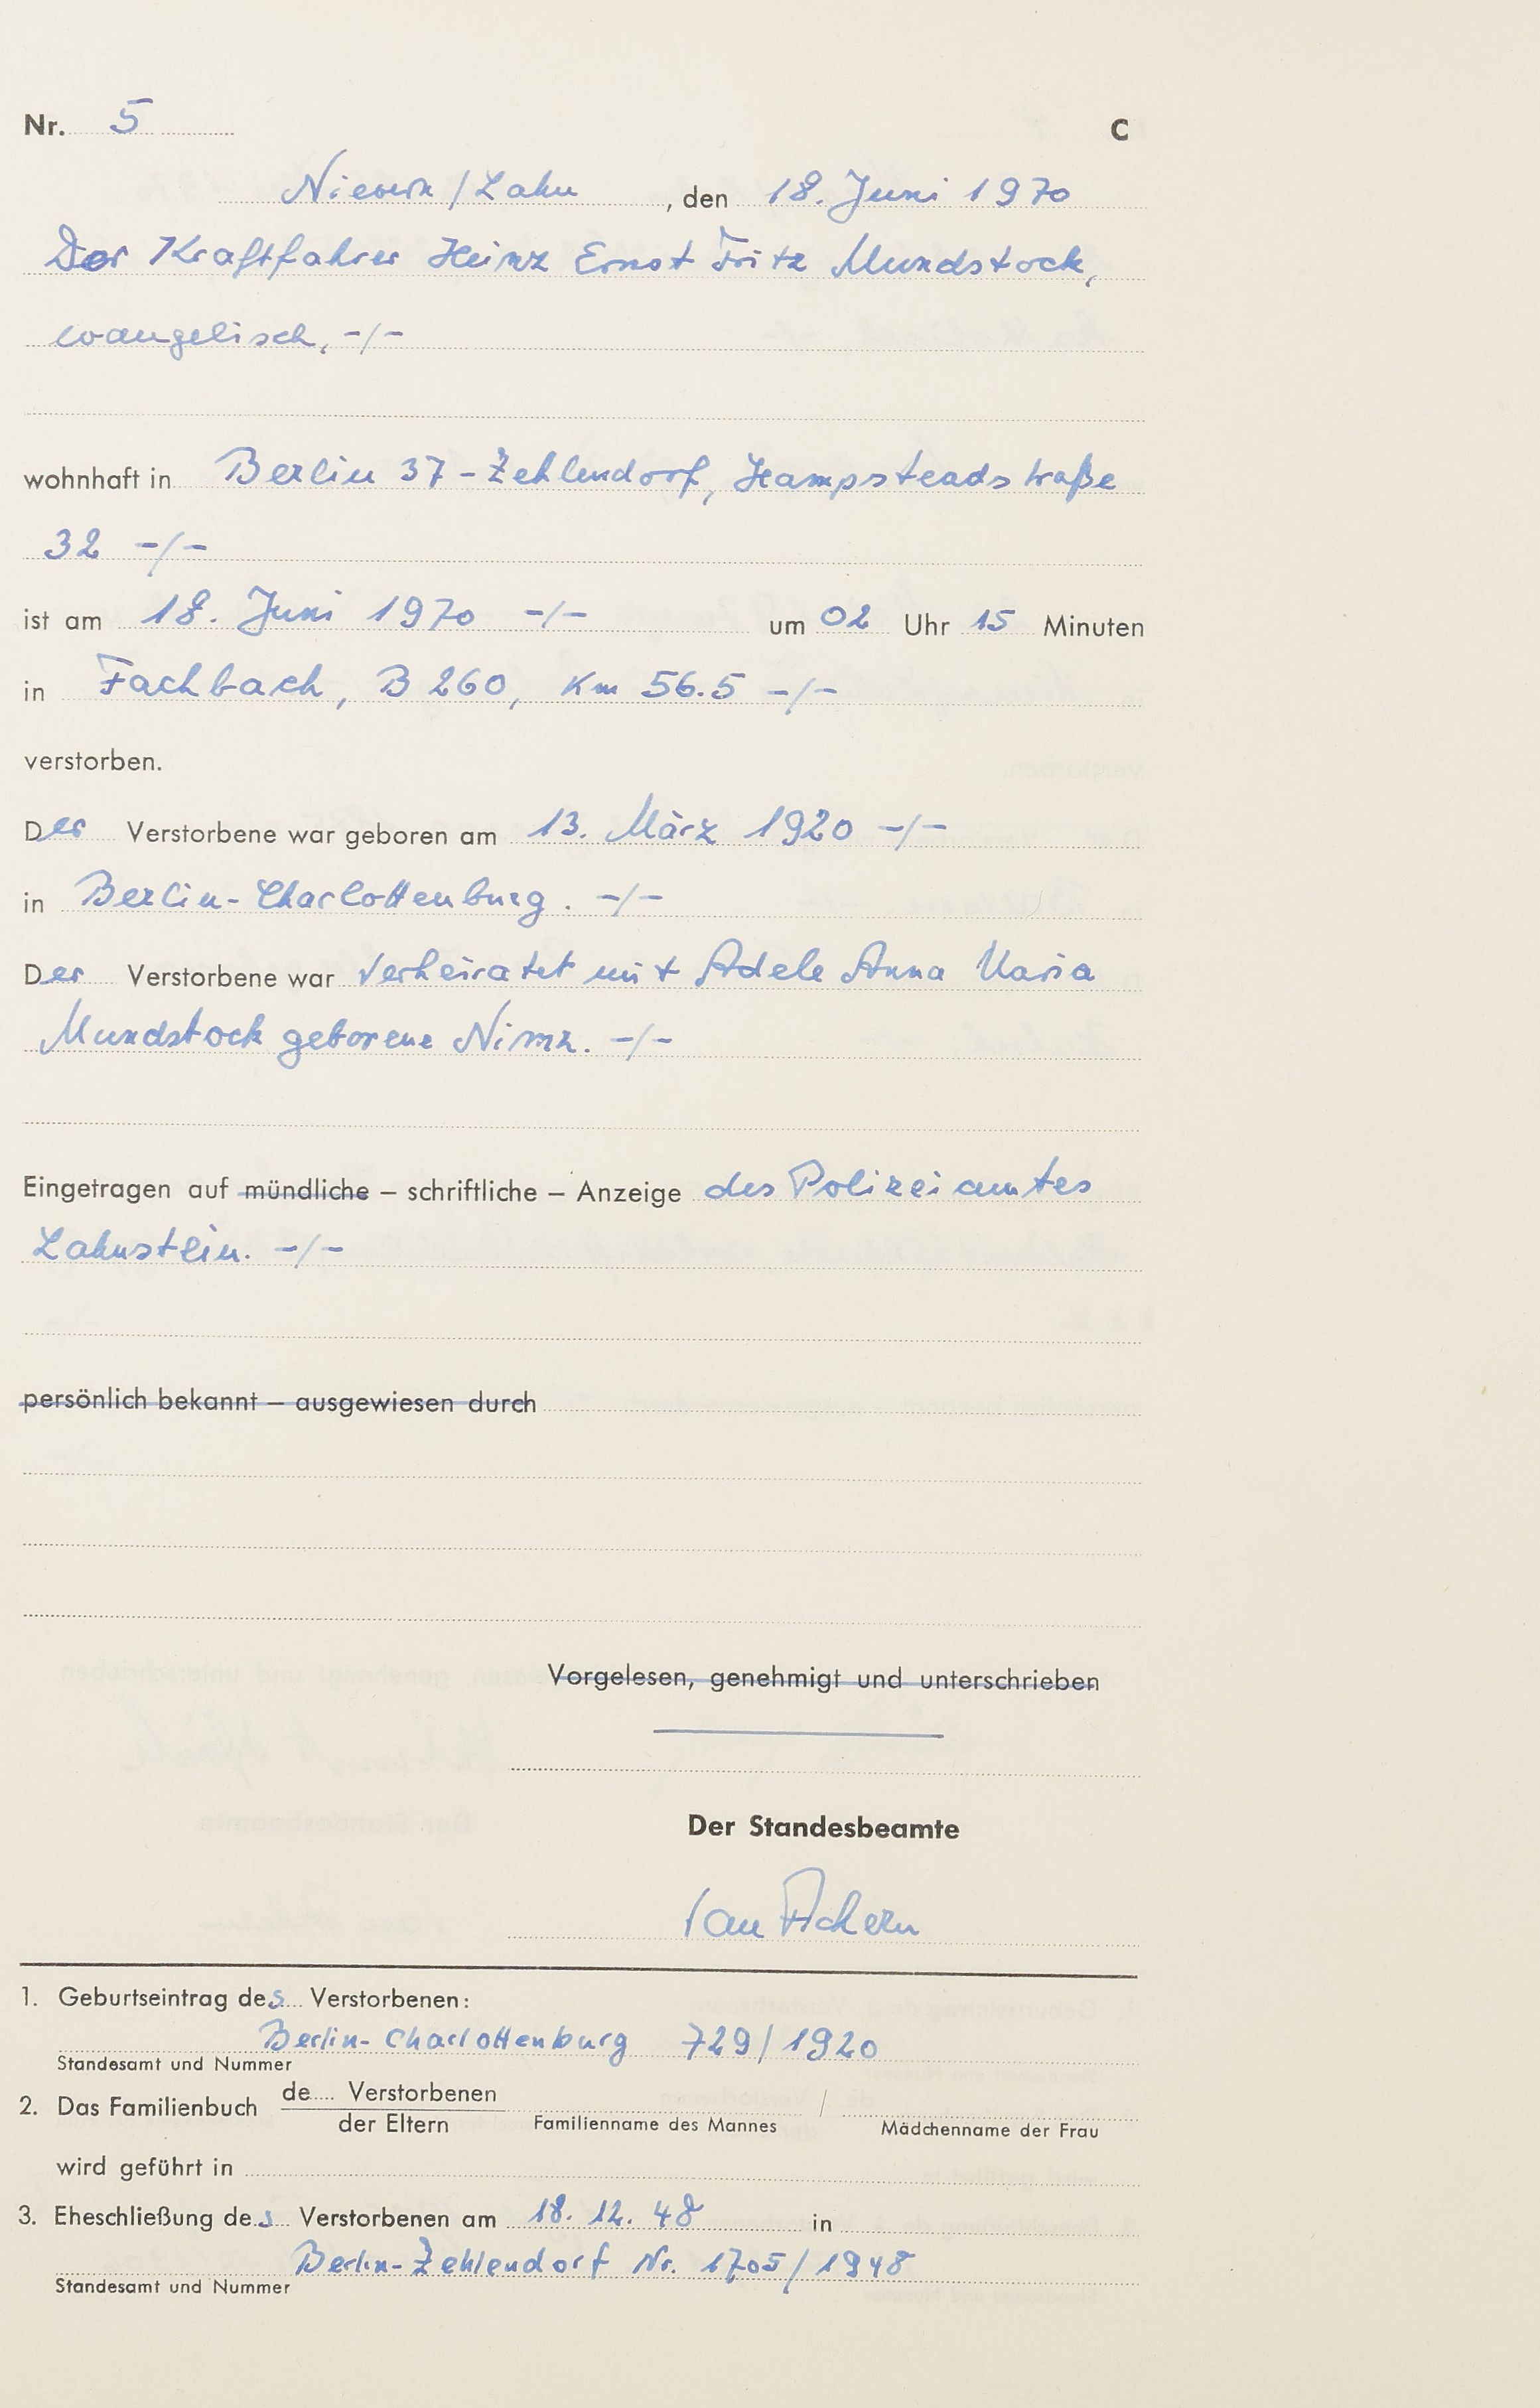 Nr. 5 C
Nievern/Lahn, den 18. Juni 1970
Der Kraftfahrer Heinz Ernst Fritz Mundstock,
evangelisch, -/-
wohnhaft in Berlin 37-Zehlendorf, Hampsteadstraße
32 -/-
ist am 18. Juni 1970 -/- um 02 Uhr 15 Minuten
in Fachbach, B 260, Km 56.5 -/-
verstorben.
Der Verstorbene war geboren am 13. März 1920 -/-
in Berlin-Charlottenburg. -/-
Der Verstorbene war verheiratet mit Adele Anna Maria
Mundstock geborene Nimz. -/-
Eingetragen auf mündliche – schriftliche – Anzeige des Polizeiamtes
Lahnstein. -/-
persönlich bekannt – ausgewiesen durch
Vorgelesen, genehmigt und unterschrieben
Der Standesbeamte
1. Geburtseintrag des Verstorbenen:
Berlin-Charlottenburg 729/1920
Standesamt und Nummer
2. Das Familienbuch de Verstorbenen /
der Eltern Familienname des Mannes Mädchenname der Frau
wird geführt in
3. Eheschließung des Verstorbenen am 18. 12. 48 in
Berlin-Zehlendorf Nr. 1705/1948
Standesamt und Nummer